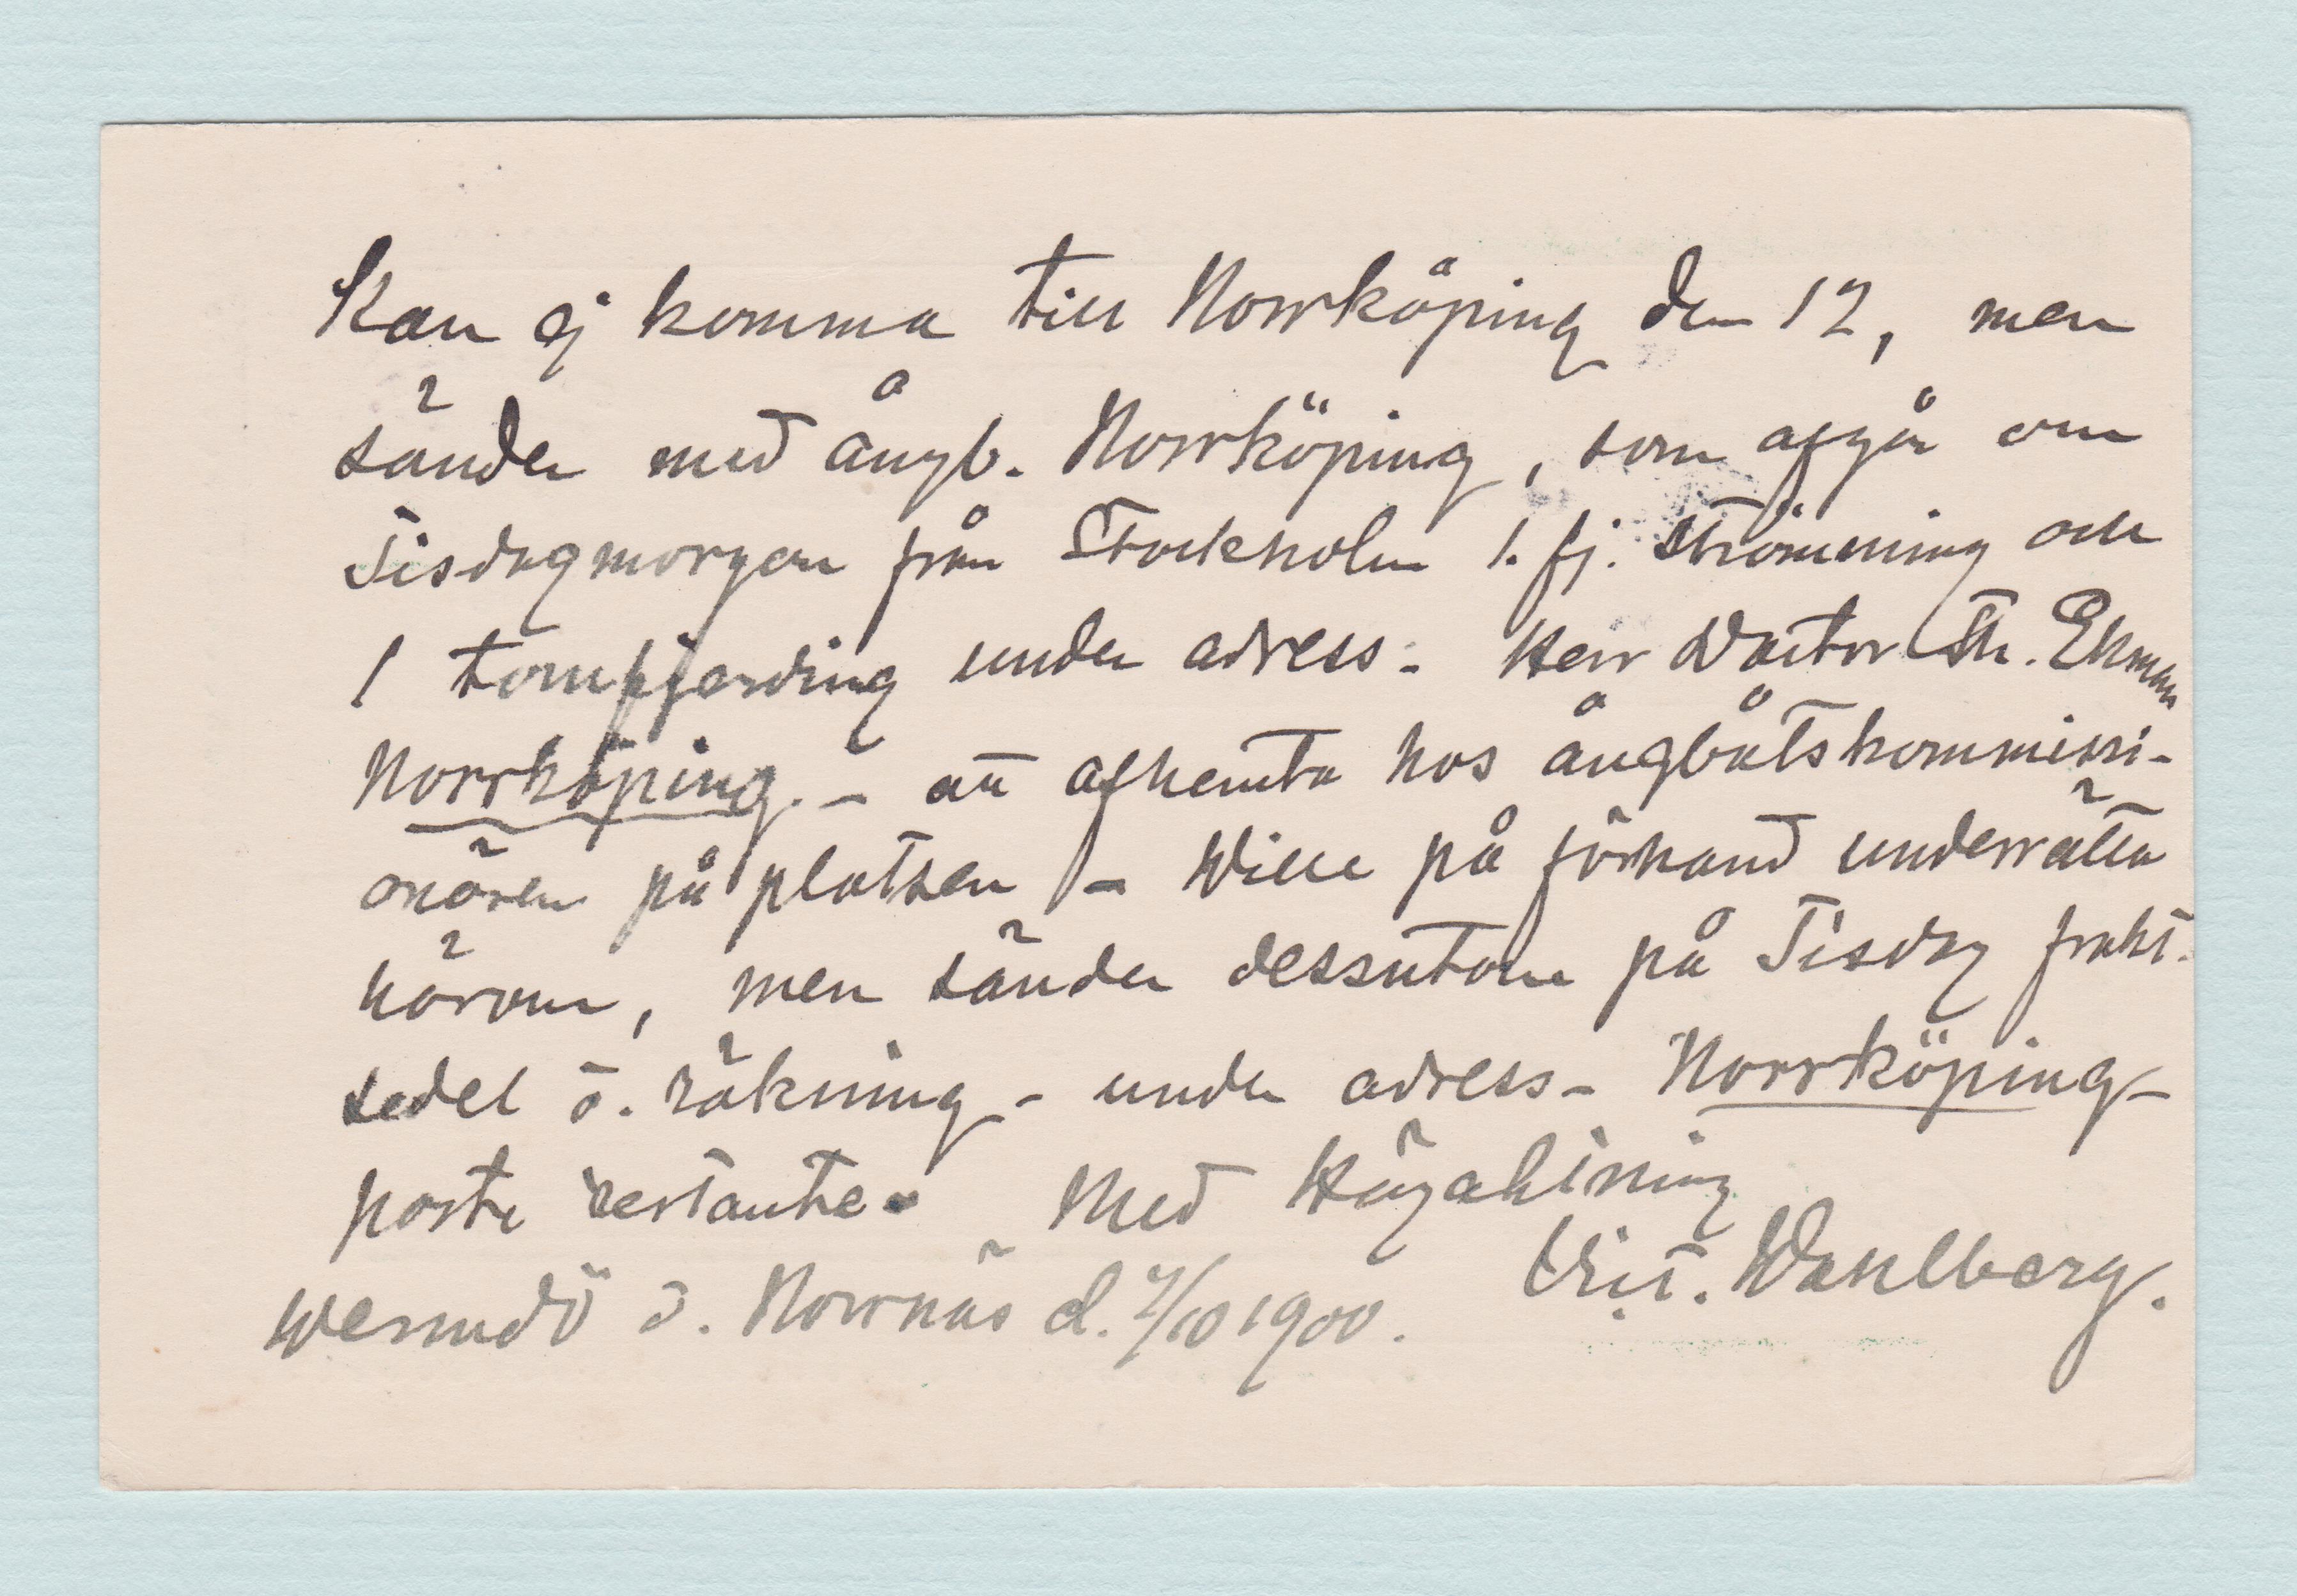 Kan ej komma till Norrköping den 12, men
sänder med ångb. Norrköping, som afgår om
Tisdagmorgon från Stockholm 1. fj. strömming och
1 tomfjerding under adress. Herr Doctor Th. Ekman
Norrköping. – att afhemta hos ångbåtskommissi-
onären på platsen – Wille på förhand underrätta
härom, men sänder dessutom på Tisdag frakt-
sedel o. räkning – under adress – Norrköping –
poste restante. Med Högaktning
Vict. Wahlberg.
Wermdö o. Norrnäs d. 7/10 1900.